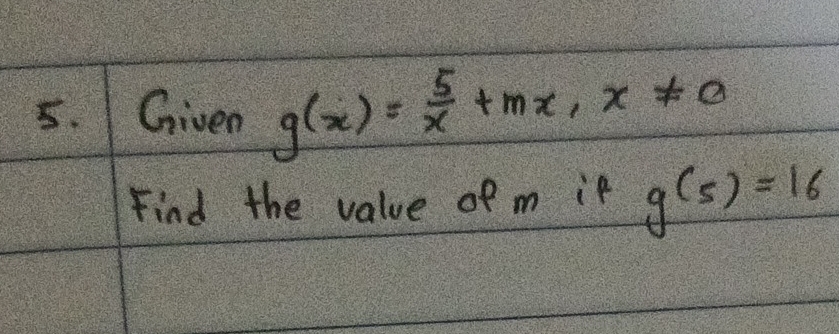 5. Given g(x) = 5/x + mx, x ≠ 0
Find the value of m if g(5) = 16